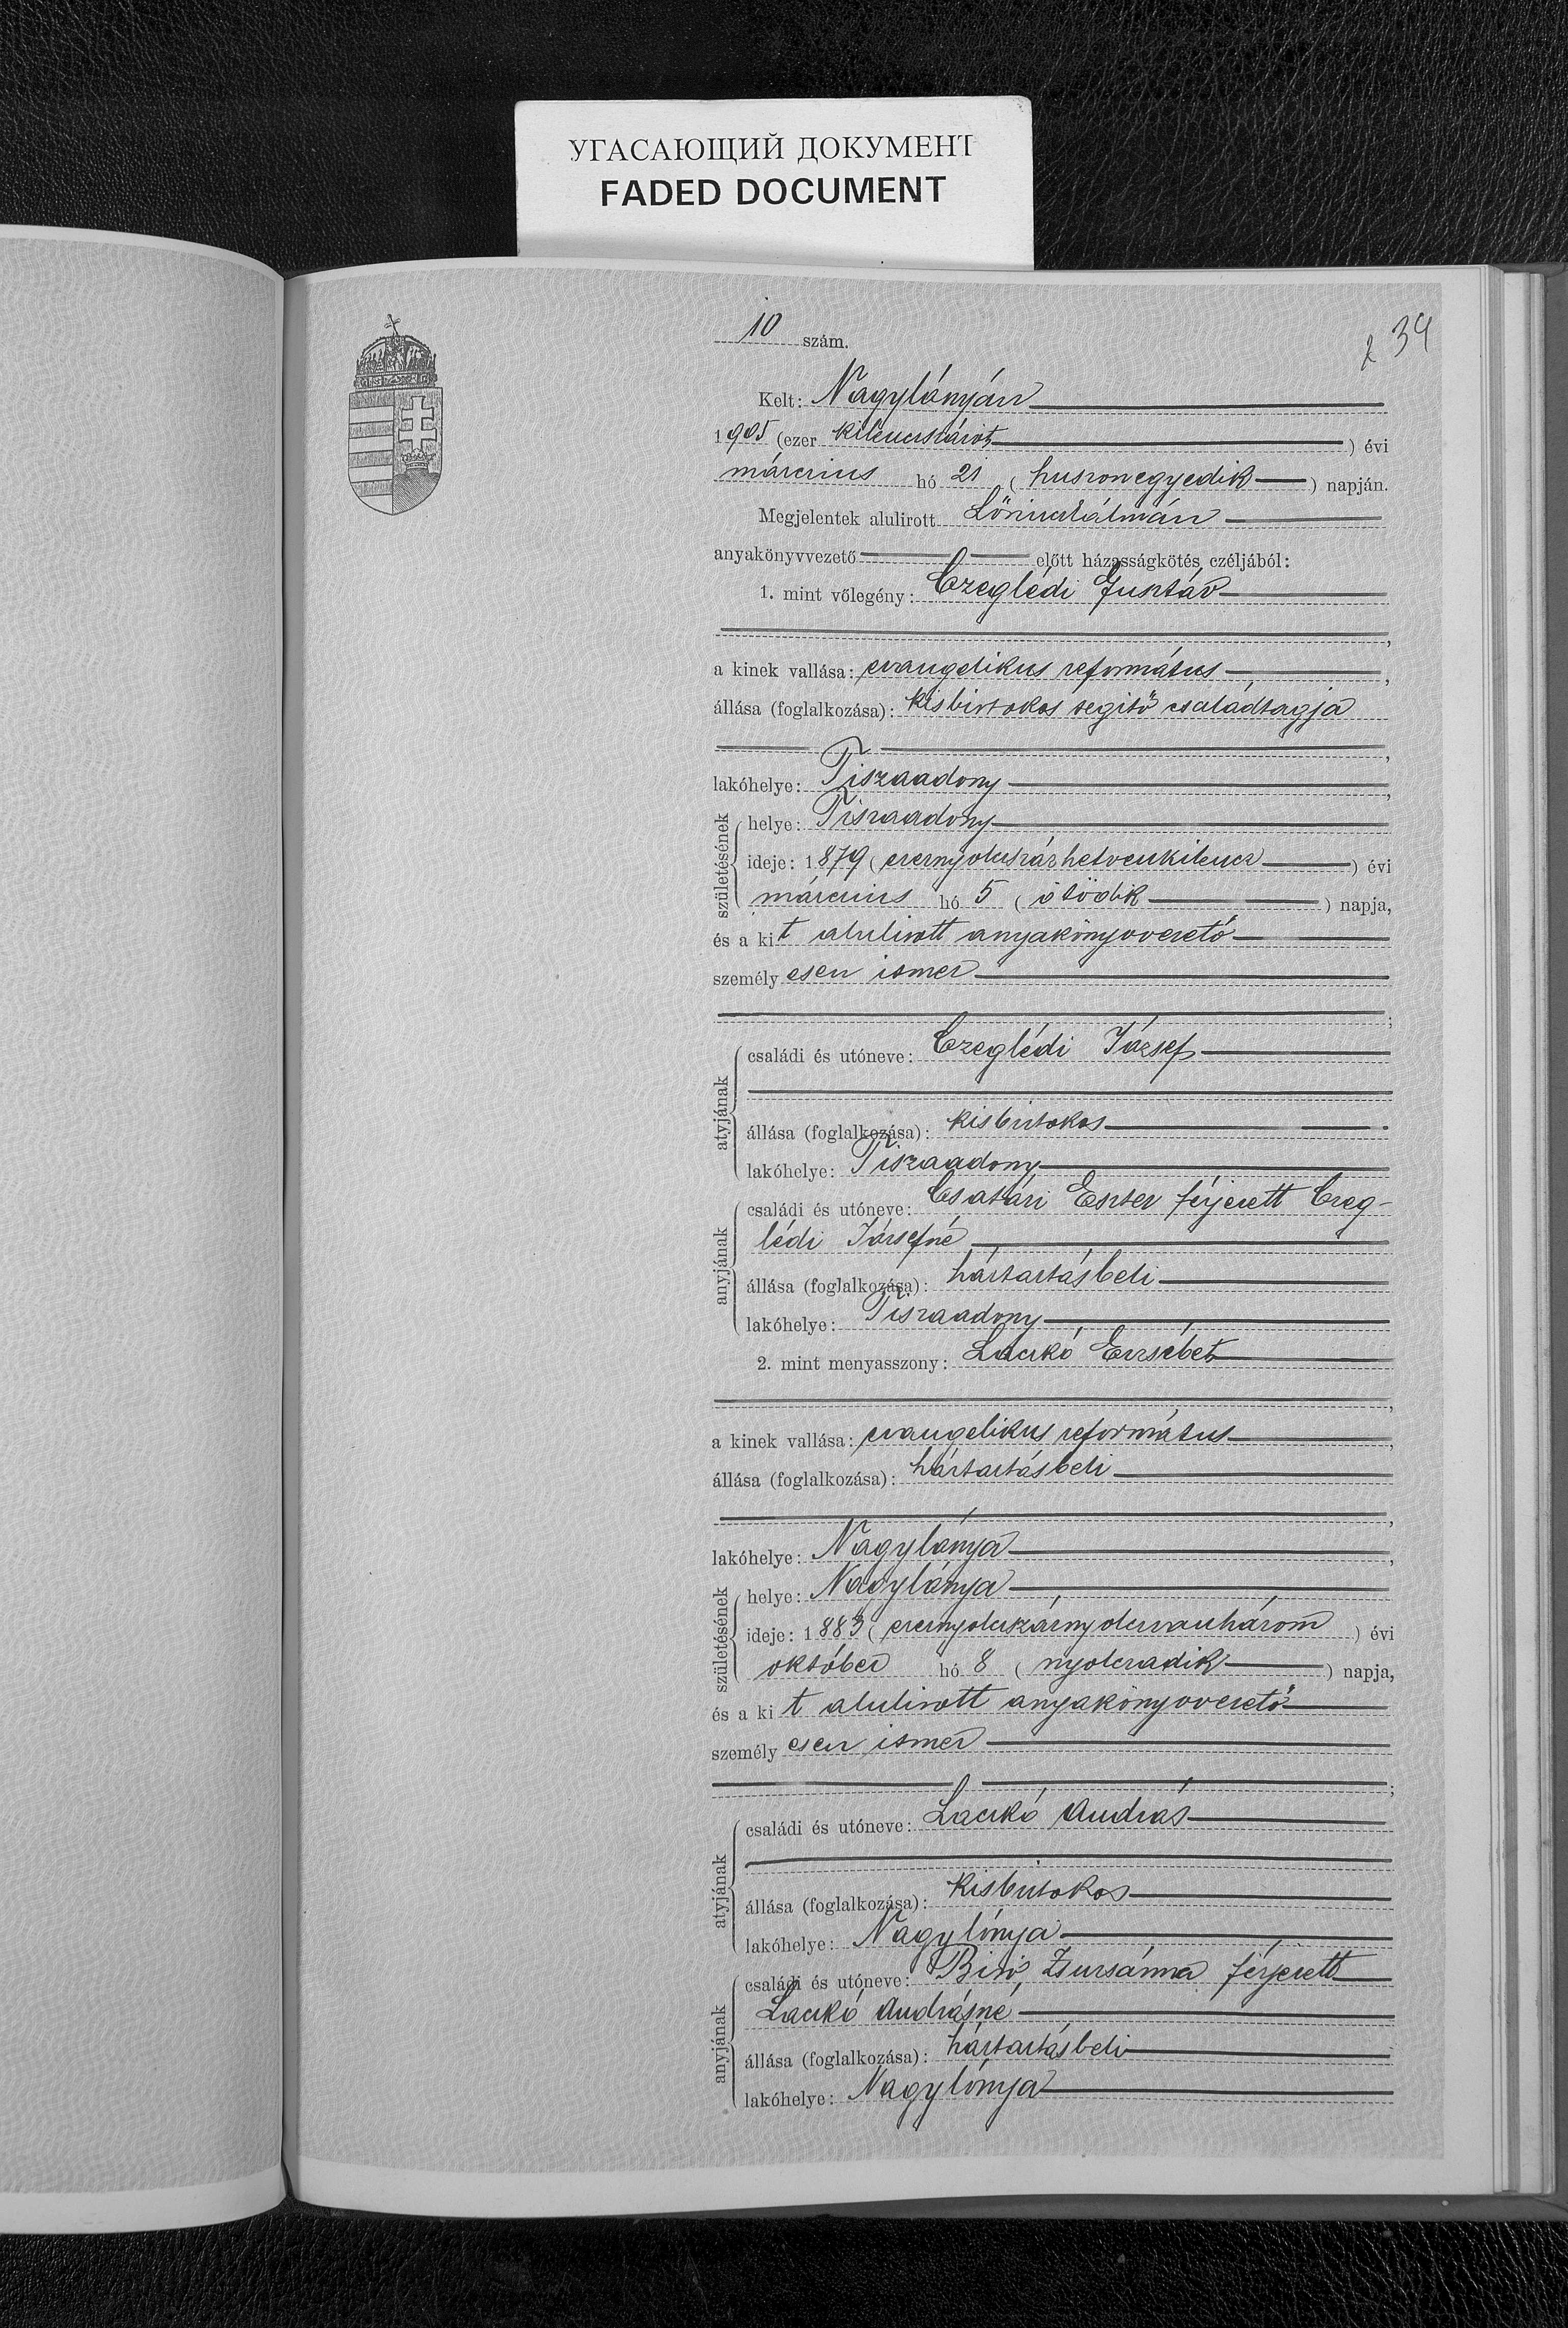 УГАСАЮЩИЙ ДОКУМЕНТ
FADED DOCUMENT
10 szám.
2 34
Kelt: Nagylónyán
1905 (ezer kilencszázöt) évi
márczius hó 21 (huszonegyedik) napján.
Megjelentek alulirott Lőrincz Kálmán
anyakönyvvezető előtt házasságkötés czéljából:
1. mint vőlegény: Czeglédi Gusztáv
a kinek vallása: evangelikus református,
állása (foglalkozása): kisbirtokos segitő családtagja
lakóhelye: Tiszaadony,
születésének
helye: Tiszaadony
ideje: 1879 (ezernyolczszázhetvenkilencz) évi
márczius hó 5 (ötödik) napja,
és a kit alulirott anyakönyvvezető
személyesen ismer
atyjának
családi és utóneve: Czeglédi József
állása (foglalkozása): kisbirtokos
lakóhelye: Tiszaadony
anyjának
családi és utóneve: Csatári Eszter férjezett Czeg-
lédi Józsefné
állása (foglalkozása): háztartásbeli
lakóhelye: Tiszaadony
2. mint menyasszony: Laczkó Erzsébet
a kinek vallása: evangelikus református,
állása (foglalkozása): háztartásbeli
lakóhelye: Nagylónya,
születésének
helye: Nagylónya
ideje: 1883 (ezernyolczszáznyolczvanhárom) évi
október hó 8 (nyolczadik) napja,
és a kit alulirott anyakönyvvezető
személyesen ismer
atyjának
családi és utóneve: Laczkó András
állása (foglalkozása): kisbirtokos
lakóhelye: Nagylónya
anyjának
családi és utóneve: Biró Zsuzsánna férjezett
Laczkó Andrásné
állása (foglalkozása): háztartásbeli
lakóhelye: Nagylónya